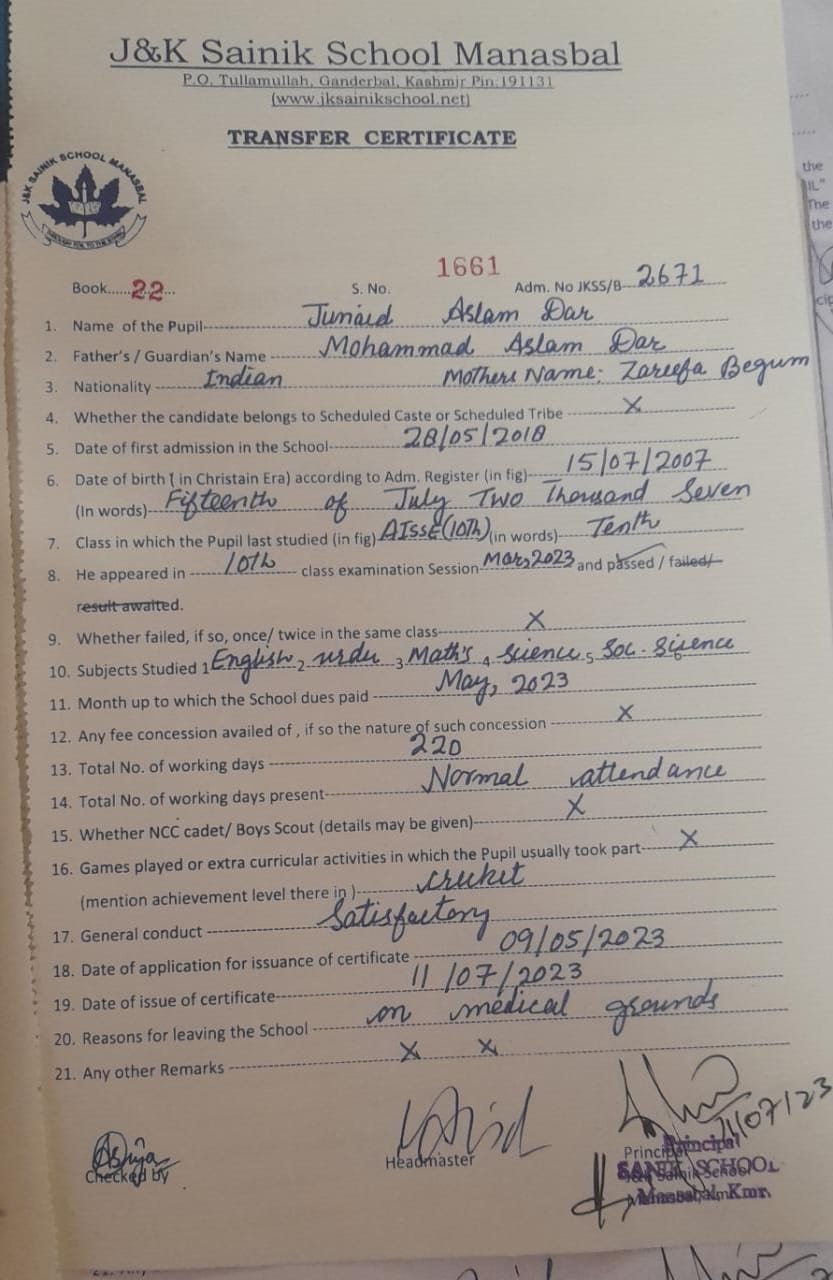 J&K Sainik School Manasbal
P.O. Tullamullah, Ganderbal, Kashmir Pin:191131
(www.jksainikschool.net)
TRANSFER CERTIFICATE
J&K SAINIK SCHOOL MANASBAL
Book......22... S. No. 1661 Adm. No JKSS/B- 2671
1. Name of the Pupil Junaid Aslam Dar
2. Father's / Guardian's Name Mohammad Aslam Dar
3. Nationality Indian Mothers Name: Zareefa Begum
4. Whether the candidate belongs to Scheduled Caste or Scheduled Tribe X
5. Date of first admission in the School 28/05/2018
6. Date of birth ( in Christain Era) according to Adm. Register (in fig) 15/07/2007
(In words) Fifteenth of July Two Thousand Seven
7. Class in which the Pupil last studied (in fig) AISSE(10Th) (in words) Tenth
8. He appeared in 10th class examination Session Mar,2023 and passed / failed/
result awaited.
9. Whether failed, if so, once/ twice in the same class X
10. Subjects Studied 1 English 2 urdu 3 Math's 4 science 5 Soc. Sicence
11. Month up to which the School dues paid May, 2023
12. Any fee concession availed of , if so the nature of such concession X
13. Total No. of working days 220
14. Total No. of working days present Normal attendance
15. Whether NCC cadet/ Boys Scout (details may be given) X
16. Games played or extra curricular activities in which the Pupil usually took part X
(mention achievement level there in ) cricket
17. General conduct Satisfactory
18. Date of application for issuance of certificate 09/05/2023
19. Date of issue of certificate 11/07/2023
20. Reasons for leaving the School on medical grounds
21. Any other Remarks X X
11/07/23
Checked by Headmaster Principal
Principal
SCHOOL
Kmr.
the
IL"
The
the